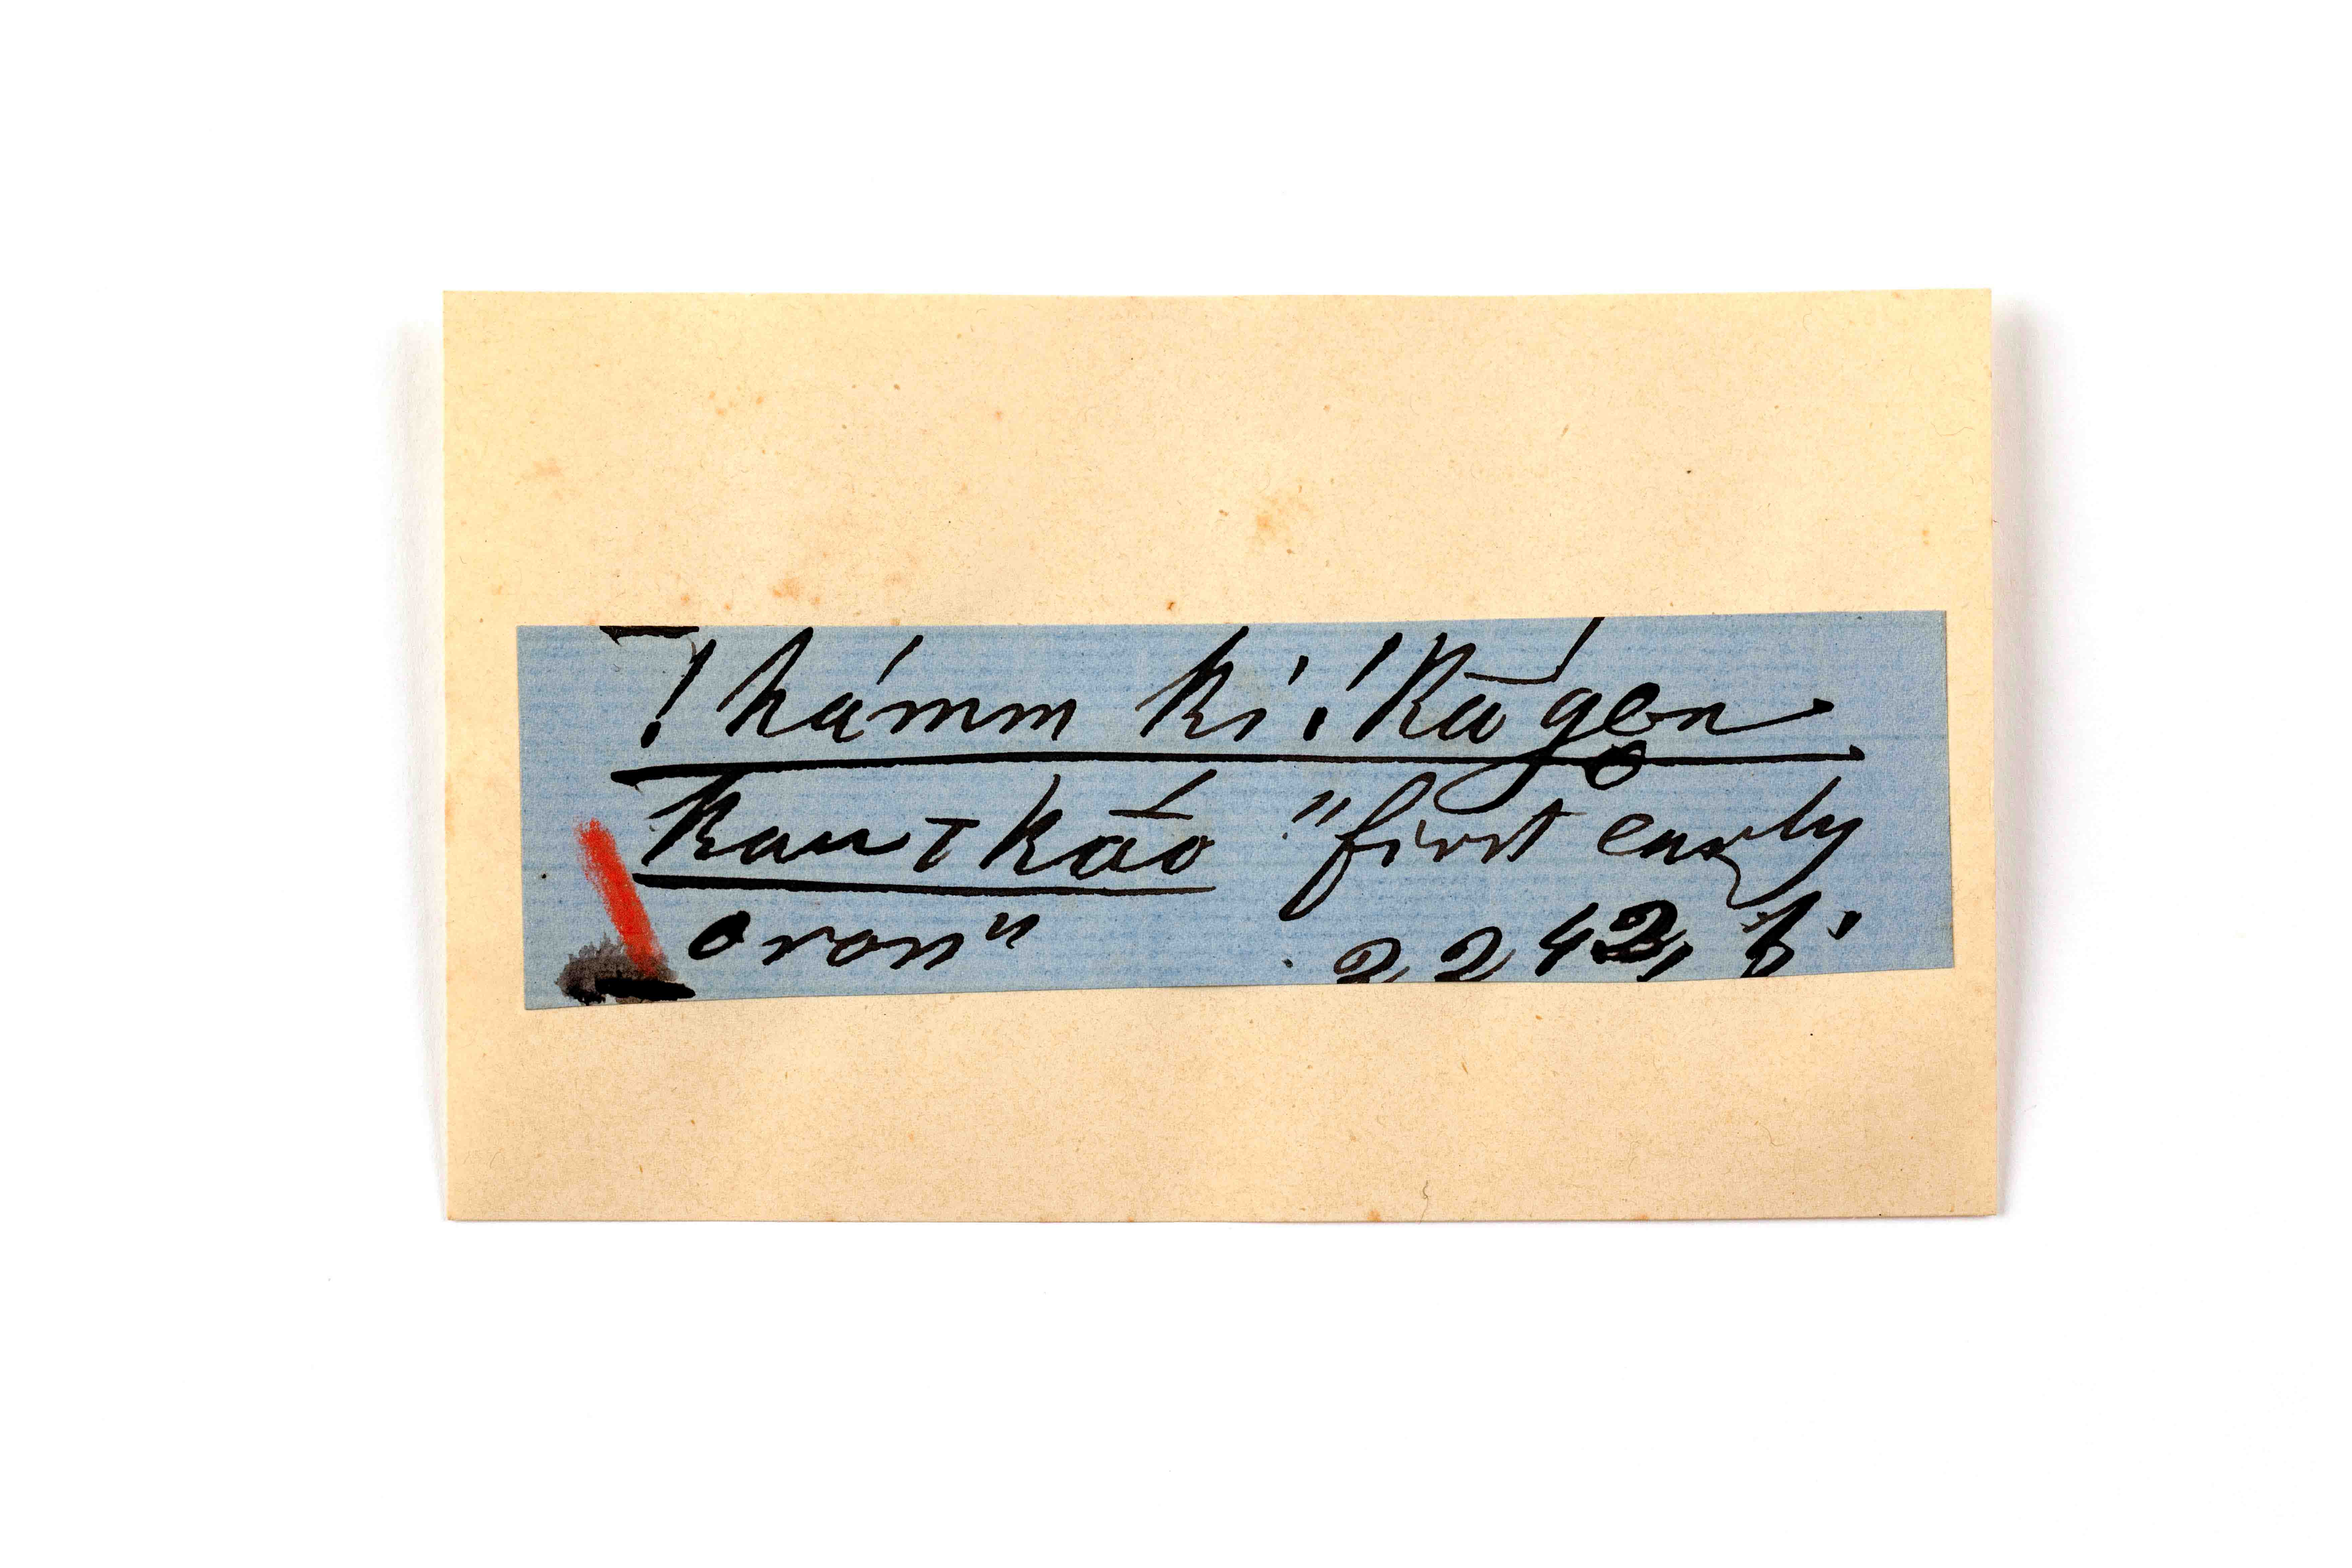 !hámm ki !kā̆gen
kau т kāo "first early
ovan"  2242, b'